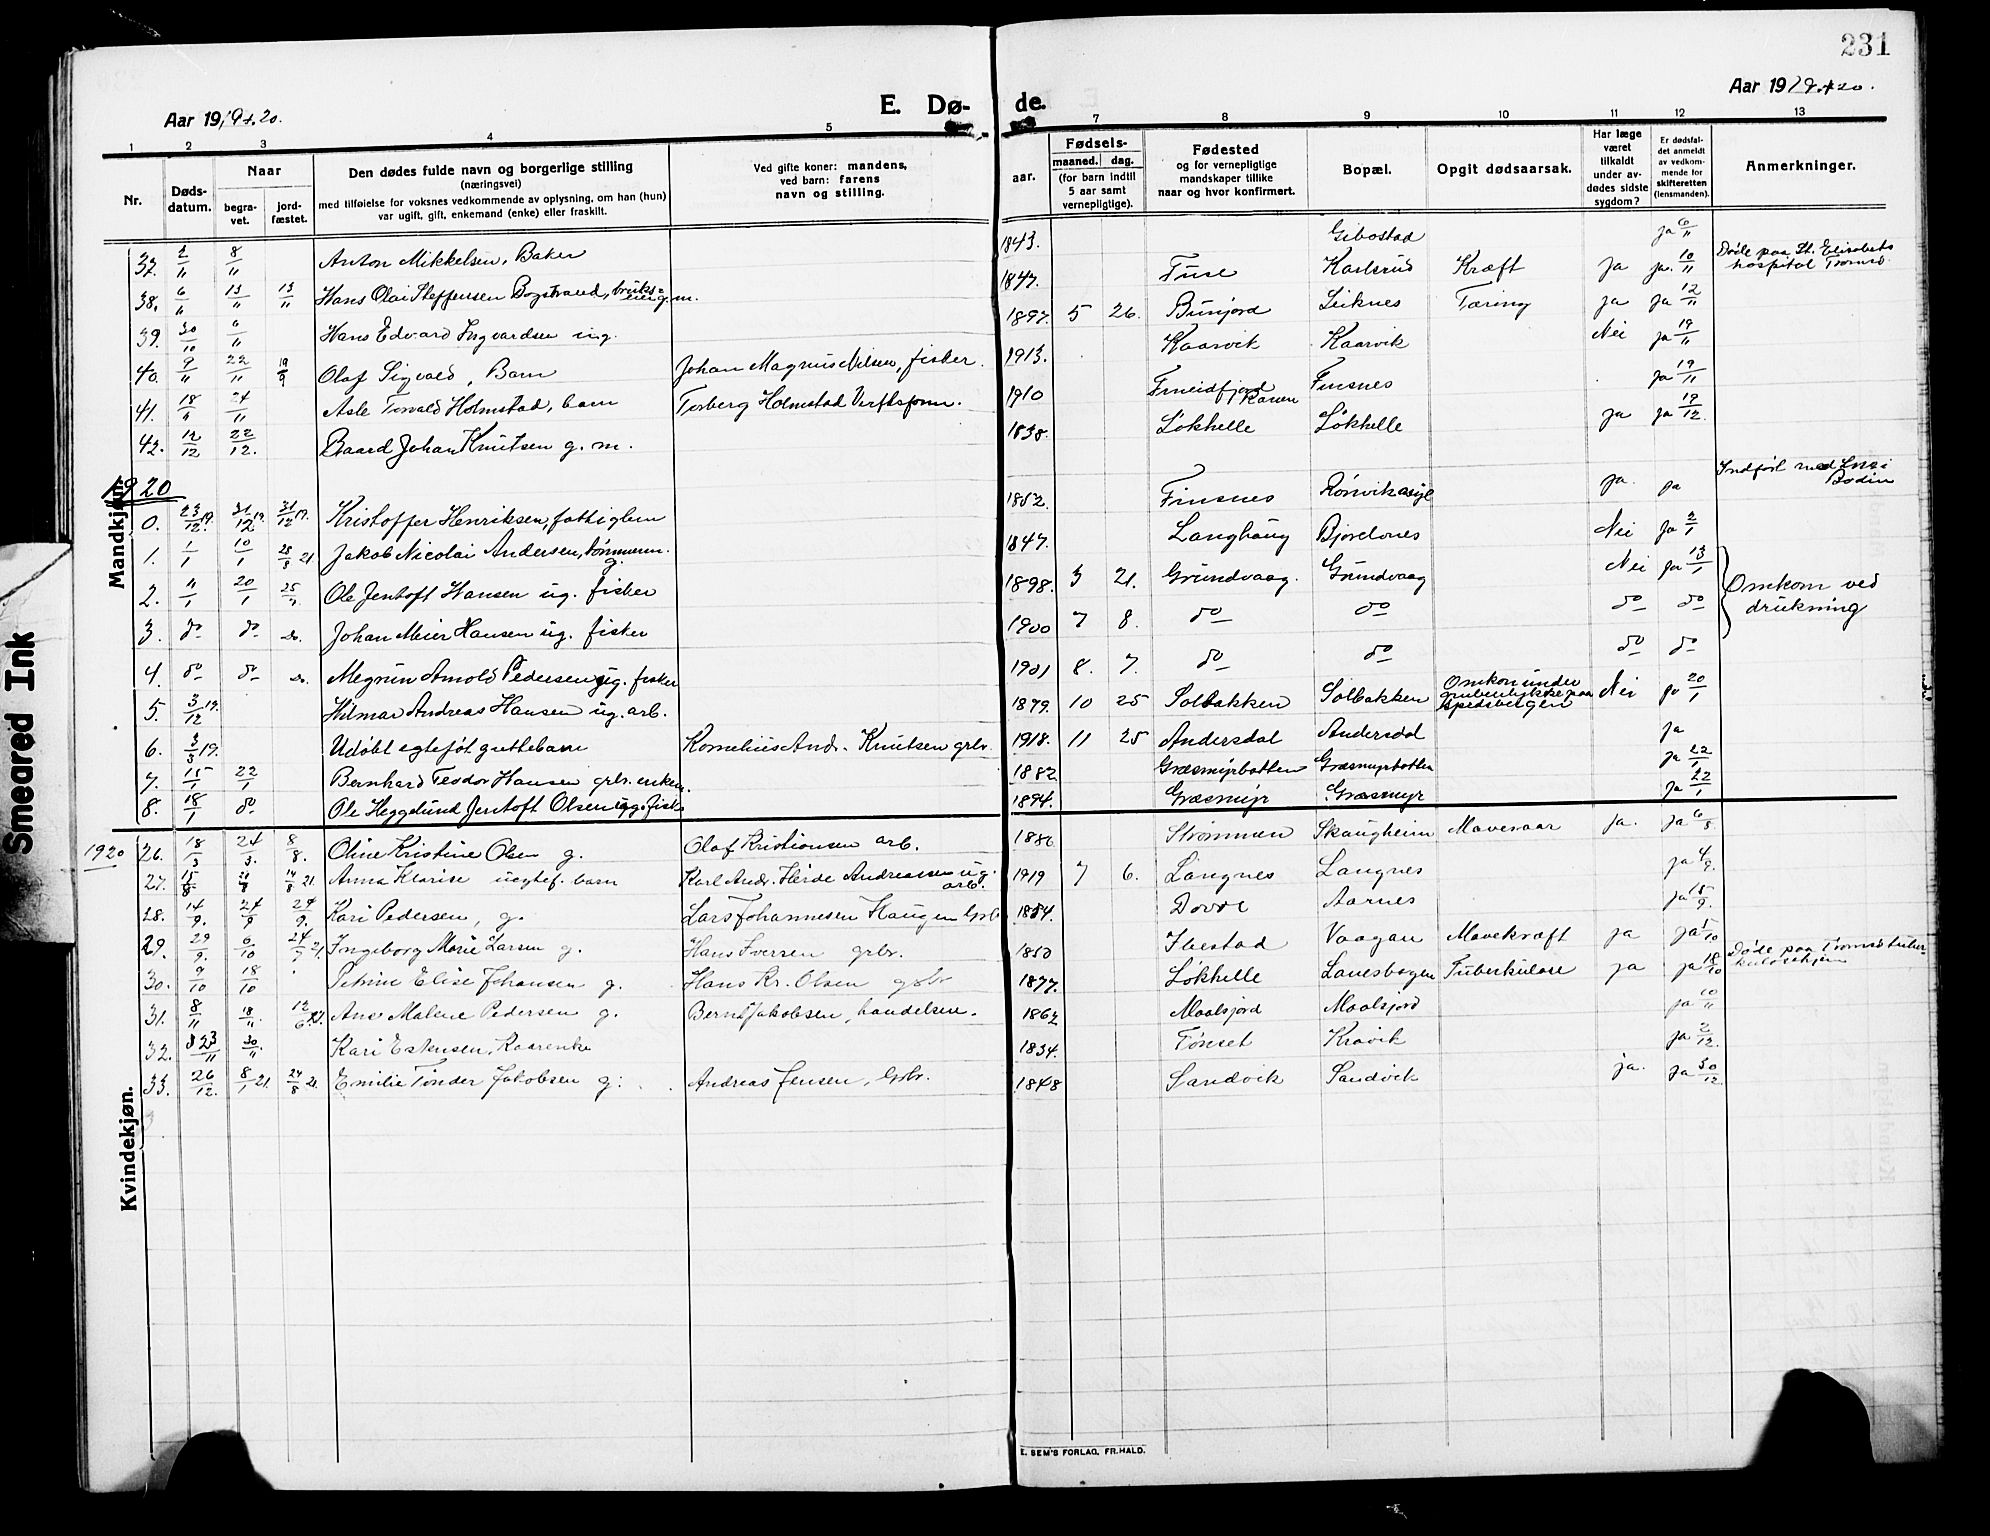 231
Aar 1919 + 20.
E. Dø-
de.
Aar 1919 + 20.
1 2 3 4 5 7 8 9 10 11 12 13
Nr.
Døds-datum.
Naar
begra-vet.
jord-fæstet.
Den dødes fulde navn og borgerlige stilling
(næringsvei)
med tilføielse for voksnes vedkommende av oplysning, om han (hun)
var ugift, gift, enkemand (enke) eller fraskilt.
Ved gifte koner: mandens,
ved barn: farens
navn og stilling.
Fødsels-
aar.
maaned. dag.
(for barn indtil
5 aar samt
vernepligtige).
Fødested
og for vernepligtige
mandskaper tillike
naar og hvor konfirmert.
Bopæl.
Opgit dødsaarsak.
Har læge
været
tilkaldt
under av-
dødes sidste
sygdom?
Er dødsfal-
det anmeldt
av vedkom-
mende for
skifteretten
(lensmanden).
Anmerkninger.
Mandkjøn.
37. 2/11 8/11 Anton Mikkelsen, Baker 1843. Gibostad ja 6/11
38. 6/11 13/11 13/11 Hans Olai Steffensen Bogstrand, g.m. 1847. Fuse Karlsrud Kræft ja ja. 10/11 Døde paa St. Elisabeths hospital Tromsø.
39. 30/10 6/11 Hans Edvard Ingvardsen ug. 1897. 5 26. Bunjord Leiknes Tæring ja ja 12/11
40. 9/11 22/11 19/9 Olaf Sigvald, Barn Johan Magnus Nilsen, fisker. 1913. Kaarvik Kaarvik Nei ja 19/11
41. 18/11 24/11 Asle Torvald Holmstad, barn Torberg Holmstad Verftsform. 1910 Finsnes ja 19/11
42. 12/12 22/12. Baard Johan Knutsen g. m. 1838. Løkhelle Løkhelle ja ja 19/12.
1920
0. 23/12 19. 31/12 19. 31/12 19. Kristoffer Henriksen, fattiglem 1852. Finsnes Rønvikasyl ja. ja Indført med Bodin
1. 1/1 10/1 28/8 21 Jakob Nicolai Andersen, g. 1847. Langhaug Bjorelvnes Nei ja 2/1
2. "/1 20/1 25/1 Ole Jentoft Hansen ug. fisker 1898 3 21. Grundvaag. Grundvaag Nei ja 13/1 Omkom ved drukning
3. do do do. Johan Meier Hansen ug. fisker 1900 7 8. do do do do
4. do do do. Megrun Arnold Pedersen ug. fisker 1901 8. 7. do do do do
5. 3/12 19. Hilmar Andreas Hansen ug. arb. 1899. 10 25 Solbakken Solbakken Omkom under grubeulykke paa Spidsbergen Nei ja 20/1
6. 3/3 19. Udøbt egteføt guttebarn Kornelius Andr. Knutsen grbr. 1918. 11 25 Andersdal Andersdal ja
7. 15/1 22/1 Bernhard Teodor Hansen grbr. enkem. 1882 Græsmyrbotten Græsmyrbotten ja 22/1
8. 18/1 do Ole Heggelund Jentoft Olsen ug. fisk 1894. Græsmyr Græsmyr ja 22/1
Kvindekjøn.
1920 26. 18/3 24/3. 8/8. Oline Kristine Olsen g. Olaf Kristiansen arb. 1886 Strømmen Skaugheim Mavesaar ja. ja 6/5
27. 15/8 21/8 14/8 21. Anna Klarise uegtef. barn Karl Andr. Heide Andreassen ug. arb. 1919 7 6. Langnes Langnes ja 4/9.
28. 14/9. 24/9 24/9. Kari Pedersen, g. Lars Johannesen Haugen Gbr. 1854. Dovre Aarnes ja 15/9.
29. 29/9. 6/10 24/7 21. Ingeborg Marie Larsen g. Hans Iversen grbr. 1850 Ibestad Vaagan Mavekræft ja ja 1/10
30. 9/10 18/10 Petrine Elise Johansen g. Hans Kr. Olsen gbr 1877. Løkhelle Lanesbogen Tuberkulose ja ja 18/10 Døde paa Tromsø tuber-kulosehjem
31. 8/11 18/11. Ane Malene Pedersen g. Bernt Jakobsen, handelsm. 1862 Maalsjord Maalsjord ja 10/11
32. 23/11 30/11. Kari Estensen, Kaarenke 1834. Tønset Kravik ja 2/12.
33. 26/12. 8/1 21. 24/8 21. Emilie Tønder Jakobsen g. Andreas Jensen, Gbr. 1848 Sandvik Sandvik ja. ja 30/12
E. SEM'S FORLAG, FR.HALD.
Smeared Ink